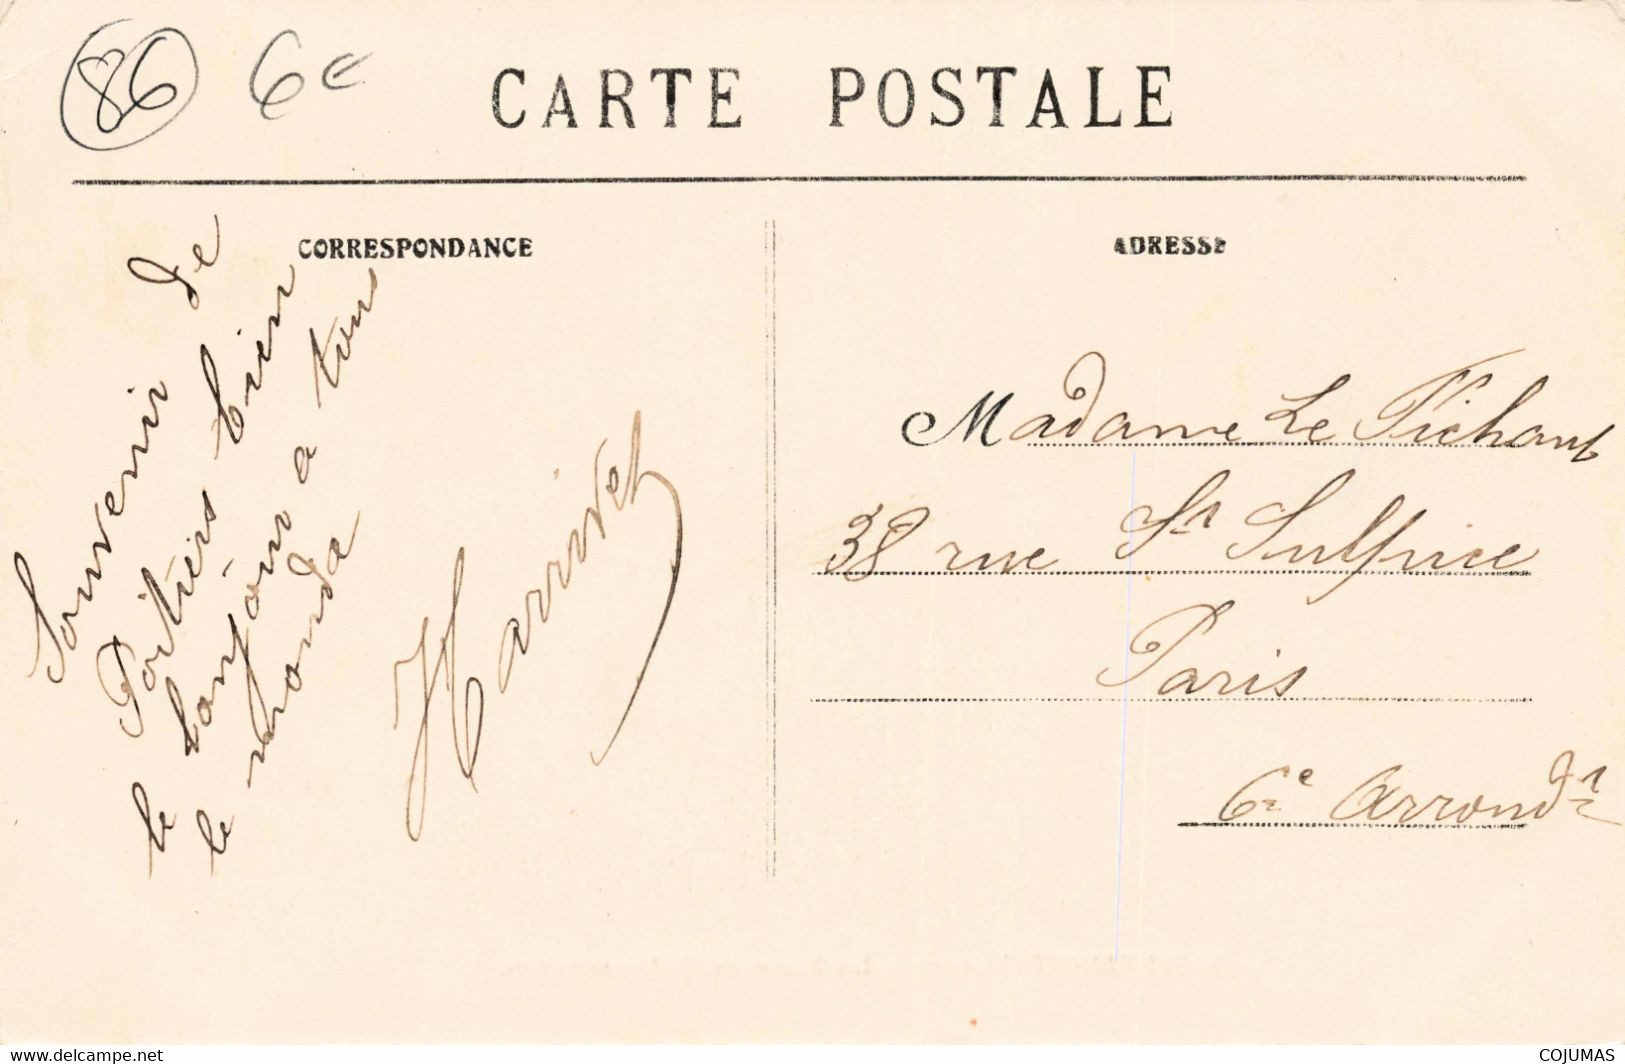 86 6e
CARTE POSTALE
CORRESPONDANCE
ADRESSE
Souvenir de
Poitiers bien
le bonjour a tous
le monde
Harrivel
Madame Le Fichant
38 rue St Sulpice
Paris
6e Arrondt
delcampe.net
COJUMAS